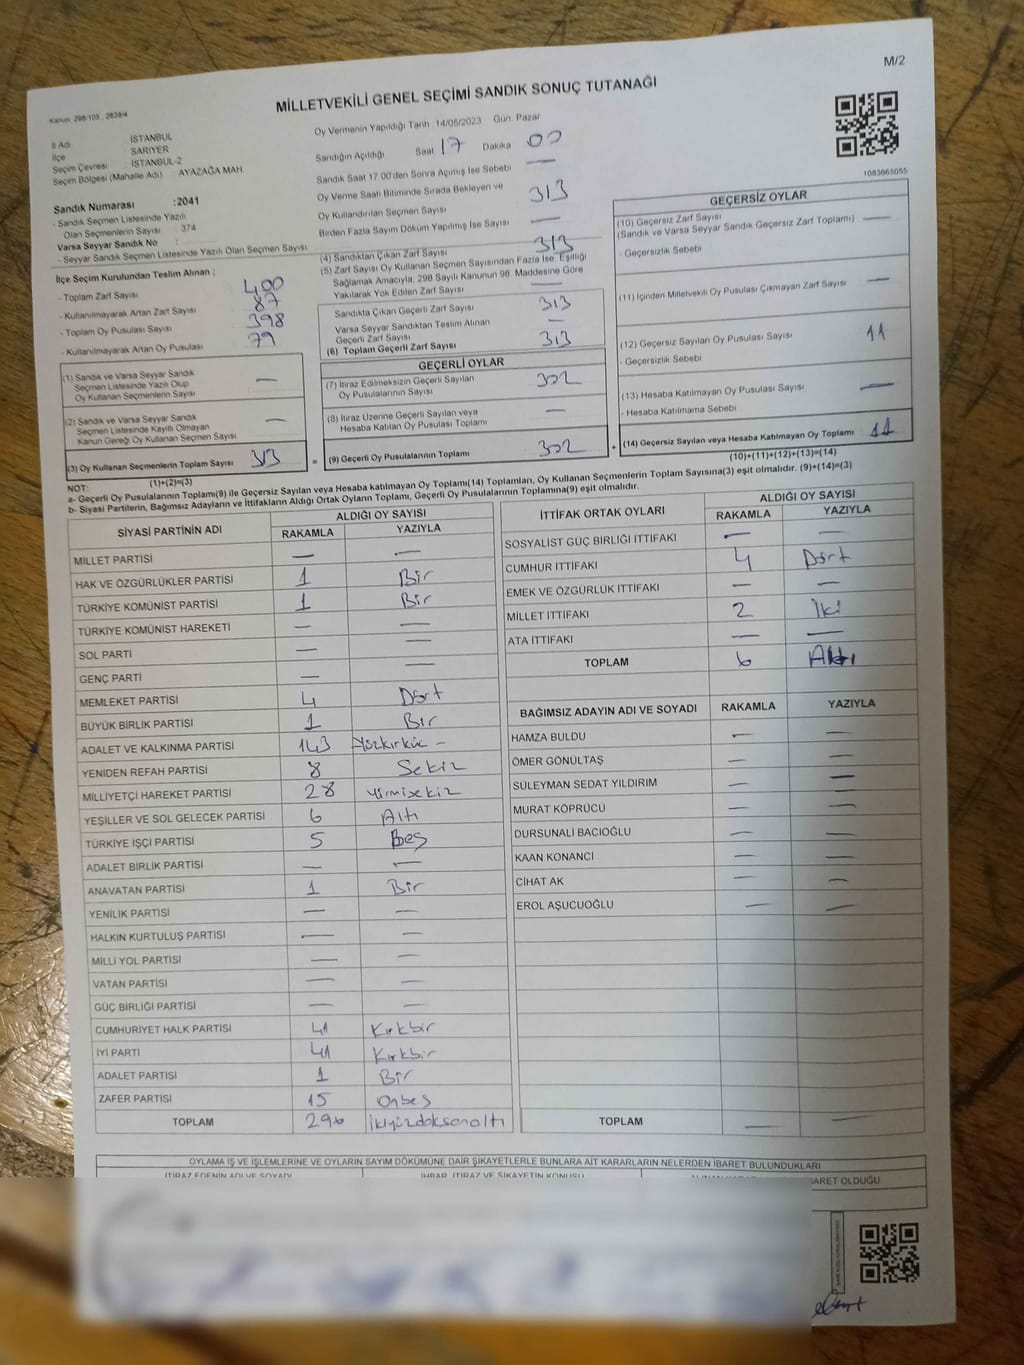 M/2
MİLLETVEKİLİ GENEL SEÇİMİ SANDIK SONUÇ TUTANAĞI
Kanun: 298/105 , 2839/4
İl Adı : İSTANBUL
İlçe : SARIYER
Seçim Çevresi : İSTANBUL-2
Seçim Bölgesi (Mahalle Adı) : AYAZAĞA MAH.
Sandık Numarası : 2041
- Sandık Seçmen Listesinde Yazılı
Olan Seçmenlerin Sayısı : 374
Varsa Seyyar Sandık No :
- Seyyar Sandık Seçmen Listesinde Yazılı Olan Seçmen Sayısı:
Oy Vermenin Yapıldığı Tarih : 14/05/2023 Gün: Pazar
Sandığın Açıldığı Saat 17 Dakika 00
Sandık Saat 17:00'den Sonra Açılmış İse Sebebi —
Oy Verme Saati Bitiminde Sırada Bekleyen ve
Oy Kullandırılan Seçmen Sayısı 313
Birden Fazla Sayım Döküm Yapılmış İse Sayısı —
1083665055
İlçe Seçim Kurulundan Teslim Alınan ;
- Toplam Zarf Sayısı : 400
- Kullanılmayarak Artan Zarf Sayısı : 87
- Toplam Oy Pusulası Sayısı : 398
- Kullanılmayarak Artan Oy Pusulası : 79
(1) Sandık ve Varsa Seyyar Sandık
Seçmen Listesinde Yazılı Olup
Oy Kullanan Seçmenlerin Sayısı —
(2) Sandık ve Varsa Seyyar Sandık
Seçmen Listesinde Kayıtlı Olmayan
Kanun Gereği Oy Kullanan Seçmen Sayısı —
(3) Oy Kullanan Seçmenlerin Toplam Sayısı 313
(1)+(2)=(3)
(4) Sandıktan Çıkan Zarf Sayısı 313
(5) Zarf Sayısı Oy Kullanan Seçmen Sayısından Fazla İse, Eşitliği
Sağlamak Amacıyla; 298 Sayılı Kanunun 98. Maddesine Göre
Yakılarak Yok Edilen Zarf Sayısı —
Sandıkta Çıkan Geçerli Zarf Sayısı 313
Varsa Seyyar Sandıktan Teslim Alınan
Geçerli Zarf Sayısı —
(6) Toplam Geçerli Zarf Sayısı 313
GEÇERLİ OYLAR
(7) İtiraz Edilmeksizin Geçerli Sayılan
Oy Pusulalarının Sayısı 302
(8) İtiraz Üzerine Geçerli Sayılan veya
Hesaba Katılan Oy Pusulası Toplamı —
(9) Geçerli Oy Pusulalarının Toplamı 302
GEÇERSİZ OYLAR
(10) Geçersiz Zarf Sayısı
(Sandık ve Varsa Seyyar Sandık Geçersiz Zarf Toplamı) —
- Geçersizlik Sebebi
(11) İçinden Milletvekili Oy Pusulası Çıkmayan Zarf Sayısı —
(12) Geçersiz Sayılan Oy Pusulası Sayısı 11
- Geçersizlik Sebebi
(13) Hesaba Katılmayan Oy Pusulası Sayısı —
- Hesaba Katılmama Sebebi
(14) Geçersiz Sayılan veya Hesaba Katılmayan Oy Toplamı 11
(10)+(11)+(12)+(13)=(14)
NOT:
a- Geçerli Oy Pusulalarının Toplamı(9) ile Geçersiz Sayılan veya Hesaba katılmayan Oy Toplamı(14) Toplamları, Oy Kullanan Seçmenlerin Toplam Sayısına(3) eşit olmalıdır. (9)+(14)=(3)
b- Siyasi Partilerin, Bağımsız Adayların ve İttifakların Aldığı Ortak Oyların Toplamı, Geçerli Oy Pusulalarının Toplamına(9) eşit olmalıdır.
SİYASİ PARTİNİN ADI ALDIĞI OY SAYISI
RAKAMLA YAZIYLA
MİLLET PARTİSİ — —
HAK VE ÖZGÜRLÜKLER PARTİSİ 1 Bir
TÜRKİYE KOMÜNİST PARTİSİ 1 Bir
TÜRKİYE KOMÜNİST HAREKETİ — —
SOL PARTİ — —
GENÇ PARTİ — —
MEMLEKET PARTİSİ 4 Dört
BÜYÜK BİRLİK PARTİSİ 1 Bir
ADALET VE KALKINMA PARTİSİ 143 Yüzkırküç —
YENİDEN REFAH PARTİSİ 8 Sekiz
MİLLİYETÇİ HAREKET PARTİSİ 28 yirmisekiz
YEŞİLLER VE SOL GELECEK PARTİSİ 6 Altı
TÜRKİYE İŞÇİ PARTİSİ 5 Beş
ADALET BİRLİK PARTİSİ — —
ANAVATAN PARTİSİ 1 Bir
YENİLİK PARTİSİ — —
HALKIN KURTULUŞ PARTİSİ — —
MİLLİ YOL PARTİSİ — —
VATAN PARTİSİ — —
GÜÇ BİRLİĞİ PARTİSİ — —
CUMHURİYET HALK PARTİSİ 41 Kırkbir
İYİ PARTİ 41 Kırkbir
ADALET PARTİSİ 1 Bir
ZAFER PARTİSİ 15 Onbeş
TOPLAM 296 ikiyüzdoksanaltı
İTTİFAK ORTAK OYLARI ALDIĞI OY SAYISI
RAKAMLA YAZIYLA
SOSYALİST GÜÇ BİRLİĞİ İTTİFAKI — —
CUMHUR İTTİFAKI 4 Dört
EMEK VE ÖZGÜRLÜK İTTİFAKI — —
MİLLET İTTİFAKI 2 iki
ATA İTTİFAKI — —
TOPLAM 6 Altı
BAĞIMSIZ ADAYIN ADI VE SOYADI RAKAMLA YAZIYLA
HAMZA BULDU — —
ÖMER GÖNÜLTAŞ — —
SÜLEYMAN SEDAT YILDIRIM — —
MURAT KÖPRÜCÜ — —
DURSUNALİ BACIOĞLU — —
KAAN KONANCİ — —
CİHAT AK — —
EROL AŞUCUOĞLU — —
TOPLAM — —
OYLAMA İŞ VE İŞLEMLERİNE VE OYLARIN SAYIM DÖKÜMÜNE DAİR ŞİKAYETLERLE BUNLARA AİT KARARLARIN NELERDEN İBARET BULUNDUKLARI
İTİRAZ EDENİN ADI VE SOYADI İHBAR, İTİRAZ VE ŞİKAYETİN KONUSU